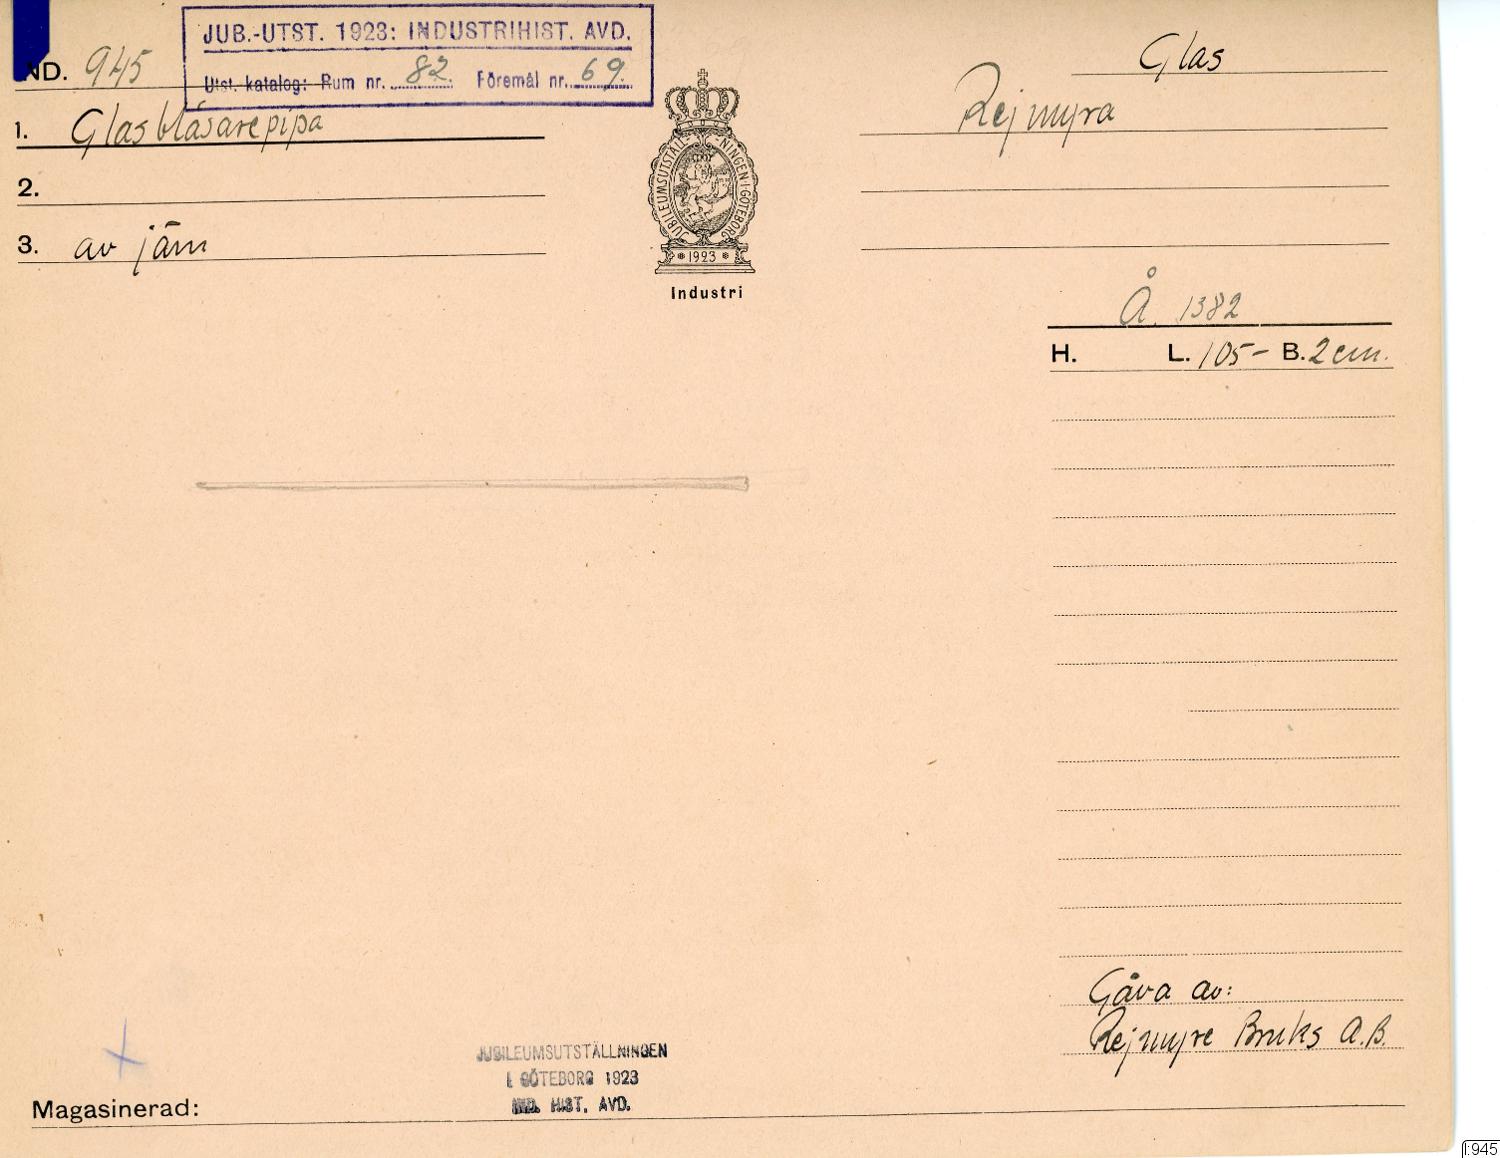 JUB.-UTST. 1923: INDUSTRIHIST. AVD.
Utst. katalog: Rum nr. 82. Föremål nr. 69.
IND. 945
Glas
1. Glasblåsarepipa
Rejmyra
2.
3. av järn
JUBILEUMSUTSTÄLLNINGEN I GÖTEBORG
* 1923 *
Industri
Å 1382
H. L. 105- B. 2 cm.
Gåva av:
Rejmyre Bruks A.B.
JUBILEUMSUTSTÄLLNINGEN
I GÖTEBORG 1923
IND. HIST. AVD.
Magasinerad:
I:945